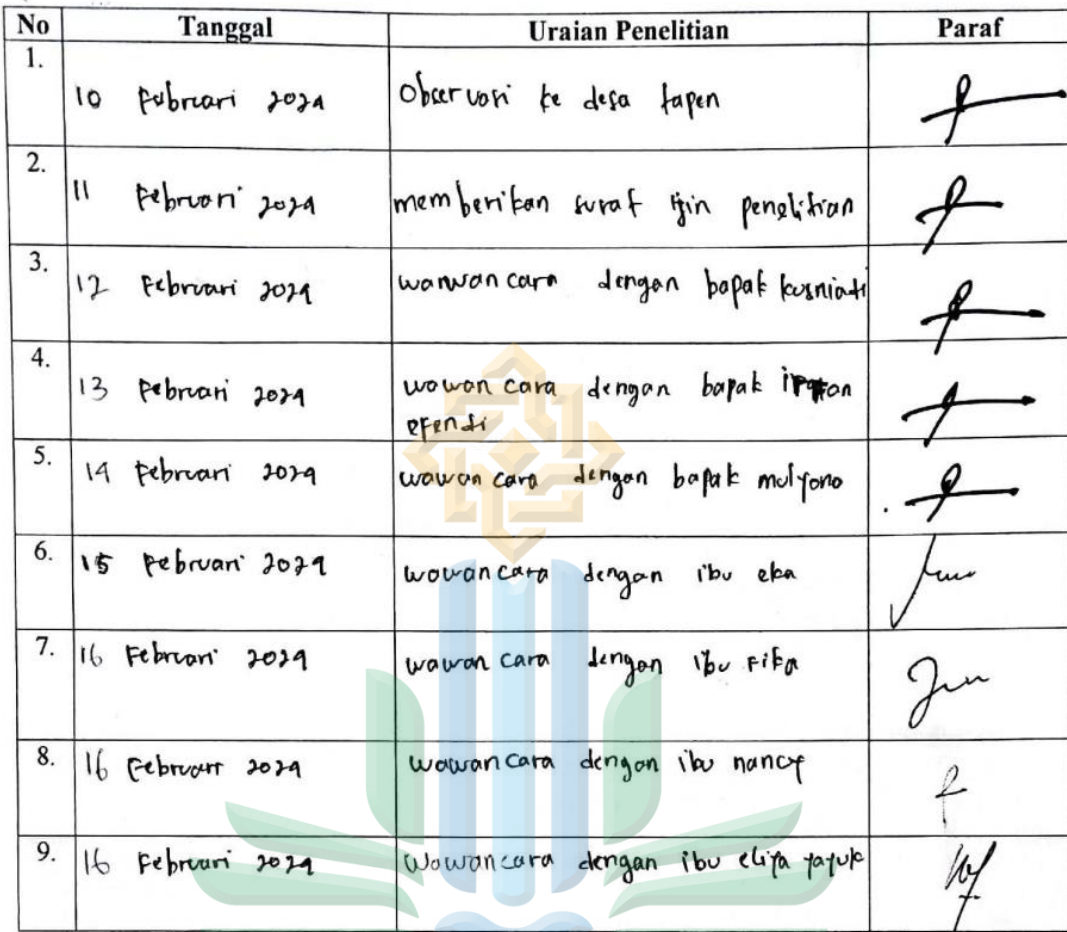 No Tanggal Uraian Penelitian Paraf
1. 10 Februari 2024 Observasi ke desa tapen
2. 11 Februari 2024 memberikan surat ijin penelitian
3. 12 Februari 2024 wanwancara dengan bapak kusniadi
4. 13 Februari 2024 wawancara dengan bapak
efendi
5. 14 Februari 2024 wawancara dengan bapak mulyono
6. 15 Februari 2024 wawancara dengan ibu eka
7. 16 Februari 2024 wawancara dengan ibu Fika
8. 16 Februari 2024 wawancara dengan ibu nancy
9. 16 Februari 2024 Wawancara dengan ibu eliya yayuk